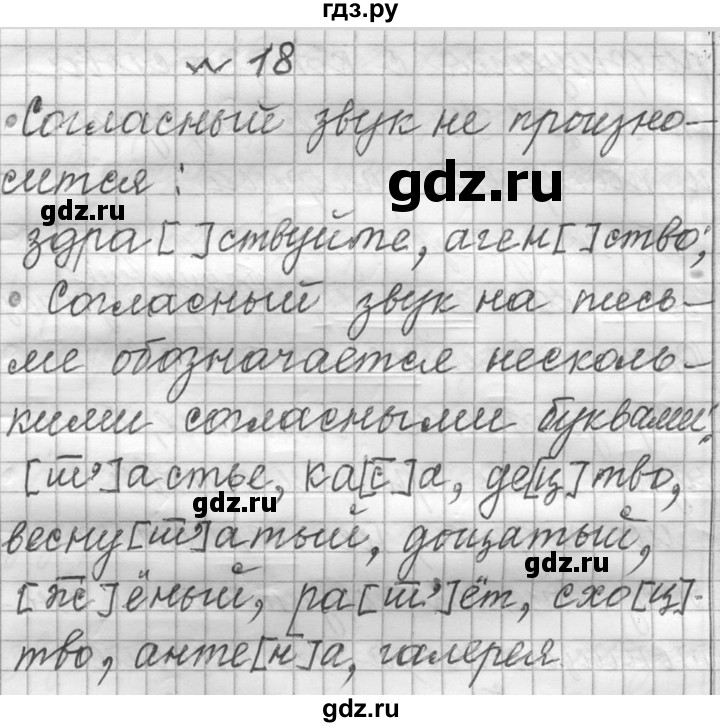 гдз.ру
№ 18
Согласный звук не произно-
сится:
gdz.ru
gdz.ru
здра[ ]ствуйте, аген[ ]ство;
Согласный звук на пись-
ме обозначается несколь-
кими согласными буквами:
[ш̅']астье, ка[с̅]а, де[ц]тво,
gdz.ru
весну[ш̅']атый, дощатый,
gdz.ru
[ж̅]ёный, ра[ш̅']ёт, схо[ц]-
тво, анте[н̅]а, галерея
gdz.ru